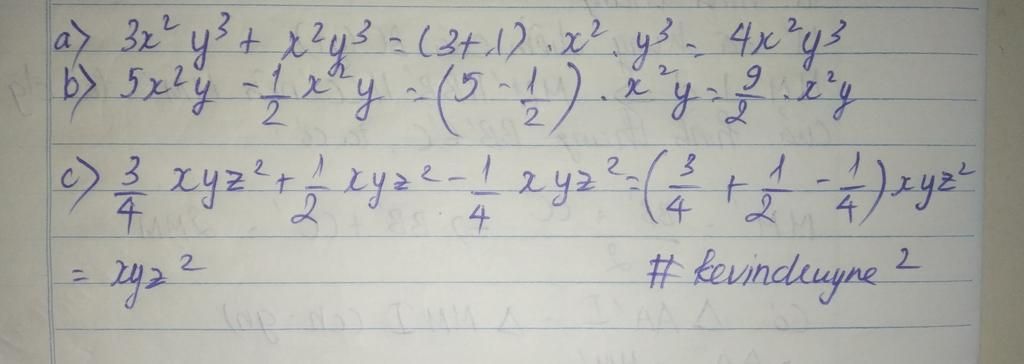 a) 3x² y³ + x²y³ = (3+1) . x² . y³ = 4x²y³
b) 5x²y - 1/2 x²y = (5 - 1/2) . x²y = 9/2 . x²y
c) 3/4 xyz² + 1/2 xyz² - 1/4 xyz² = (3/4 + 1/2 - 1/4) xyz²
= xyz² # kevindwyne 2